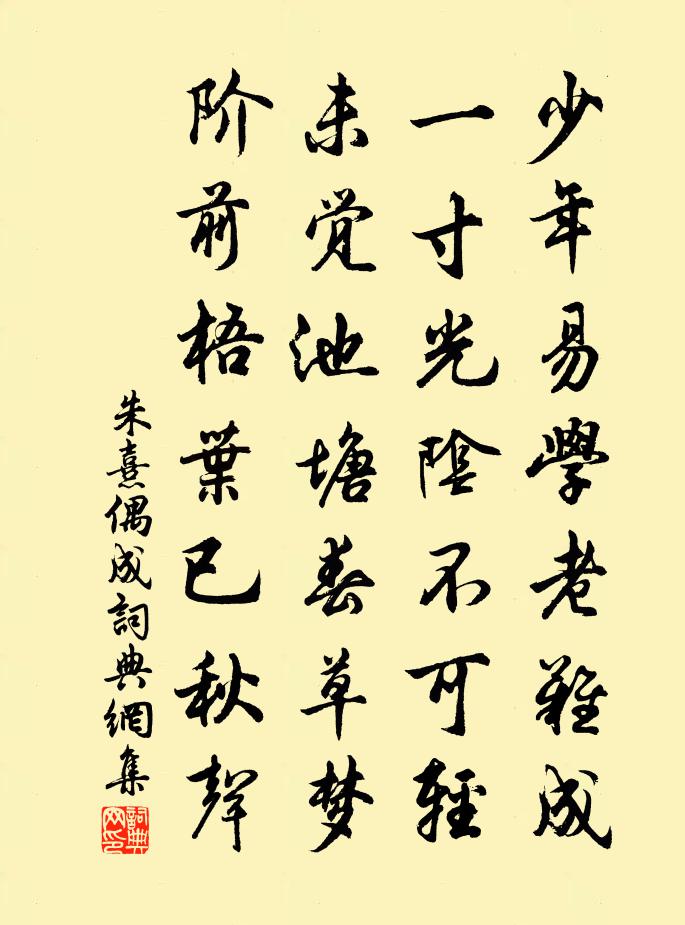 少年易學老難成
一寸光陰不可輕
未觉池塘春草梦
阶前梧葉已秋聲
朱熹偶成詞典網集
詞典
网印